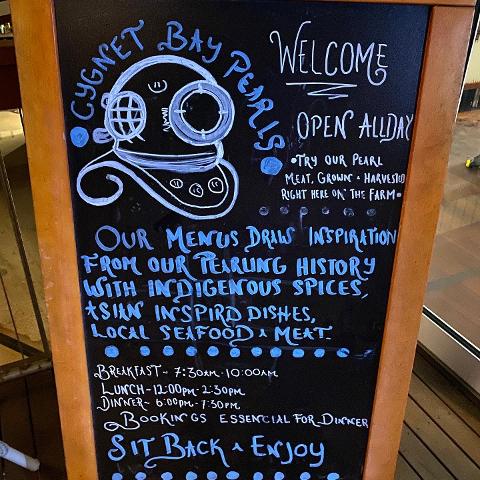 CYGNET BAY PEARLS
WELCOME
OPEN ALLDAY
•TRY OUR PEARL
MEAT, GROWN & HARVESTED
RIGHT HERE ON THE FARM•
OUR MENUS DRAWS INSPIRATION
FROM OUR PEARLING HISTORY
WITH INDIGENOUS SPICES,
ASIAN INSPIRD DISHES,
LOCAL SEAFOOD & MEAT.
BREAKFAST~ 7:30AM-10:00AM
LUNCH~12:00PM-2:30PM
DINNER~ 6:00PM-7:30PM
BOOKINGS ESSENCIAL FOR DINNER
SIT BACK & ENJOY